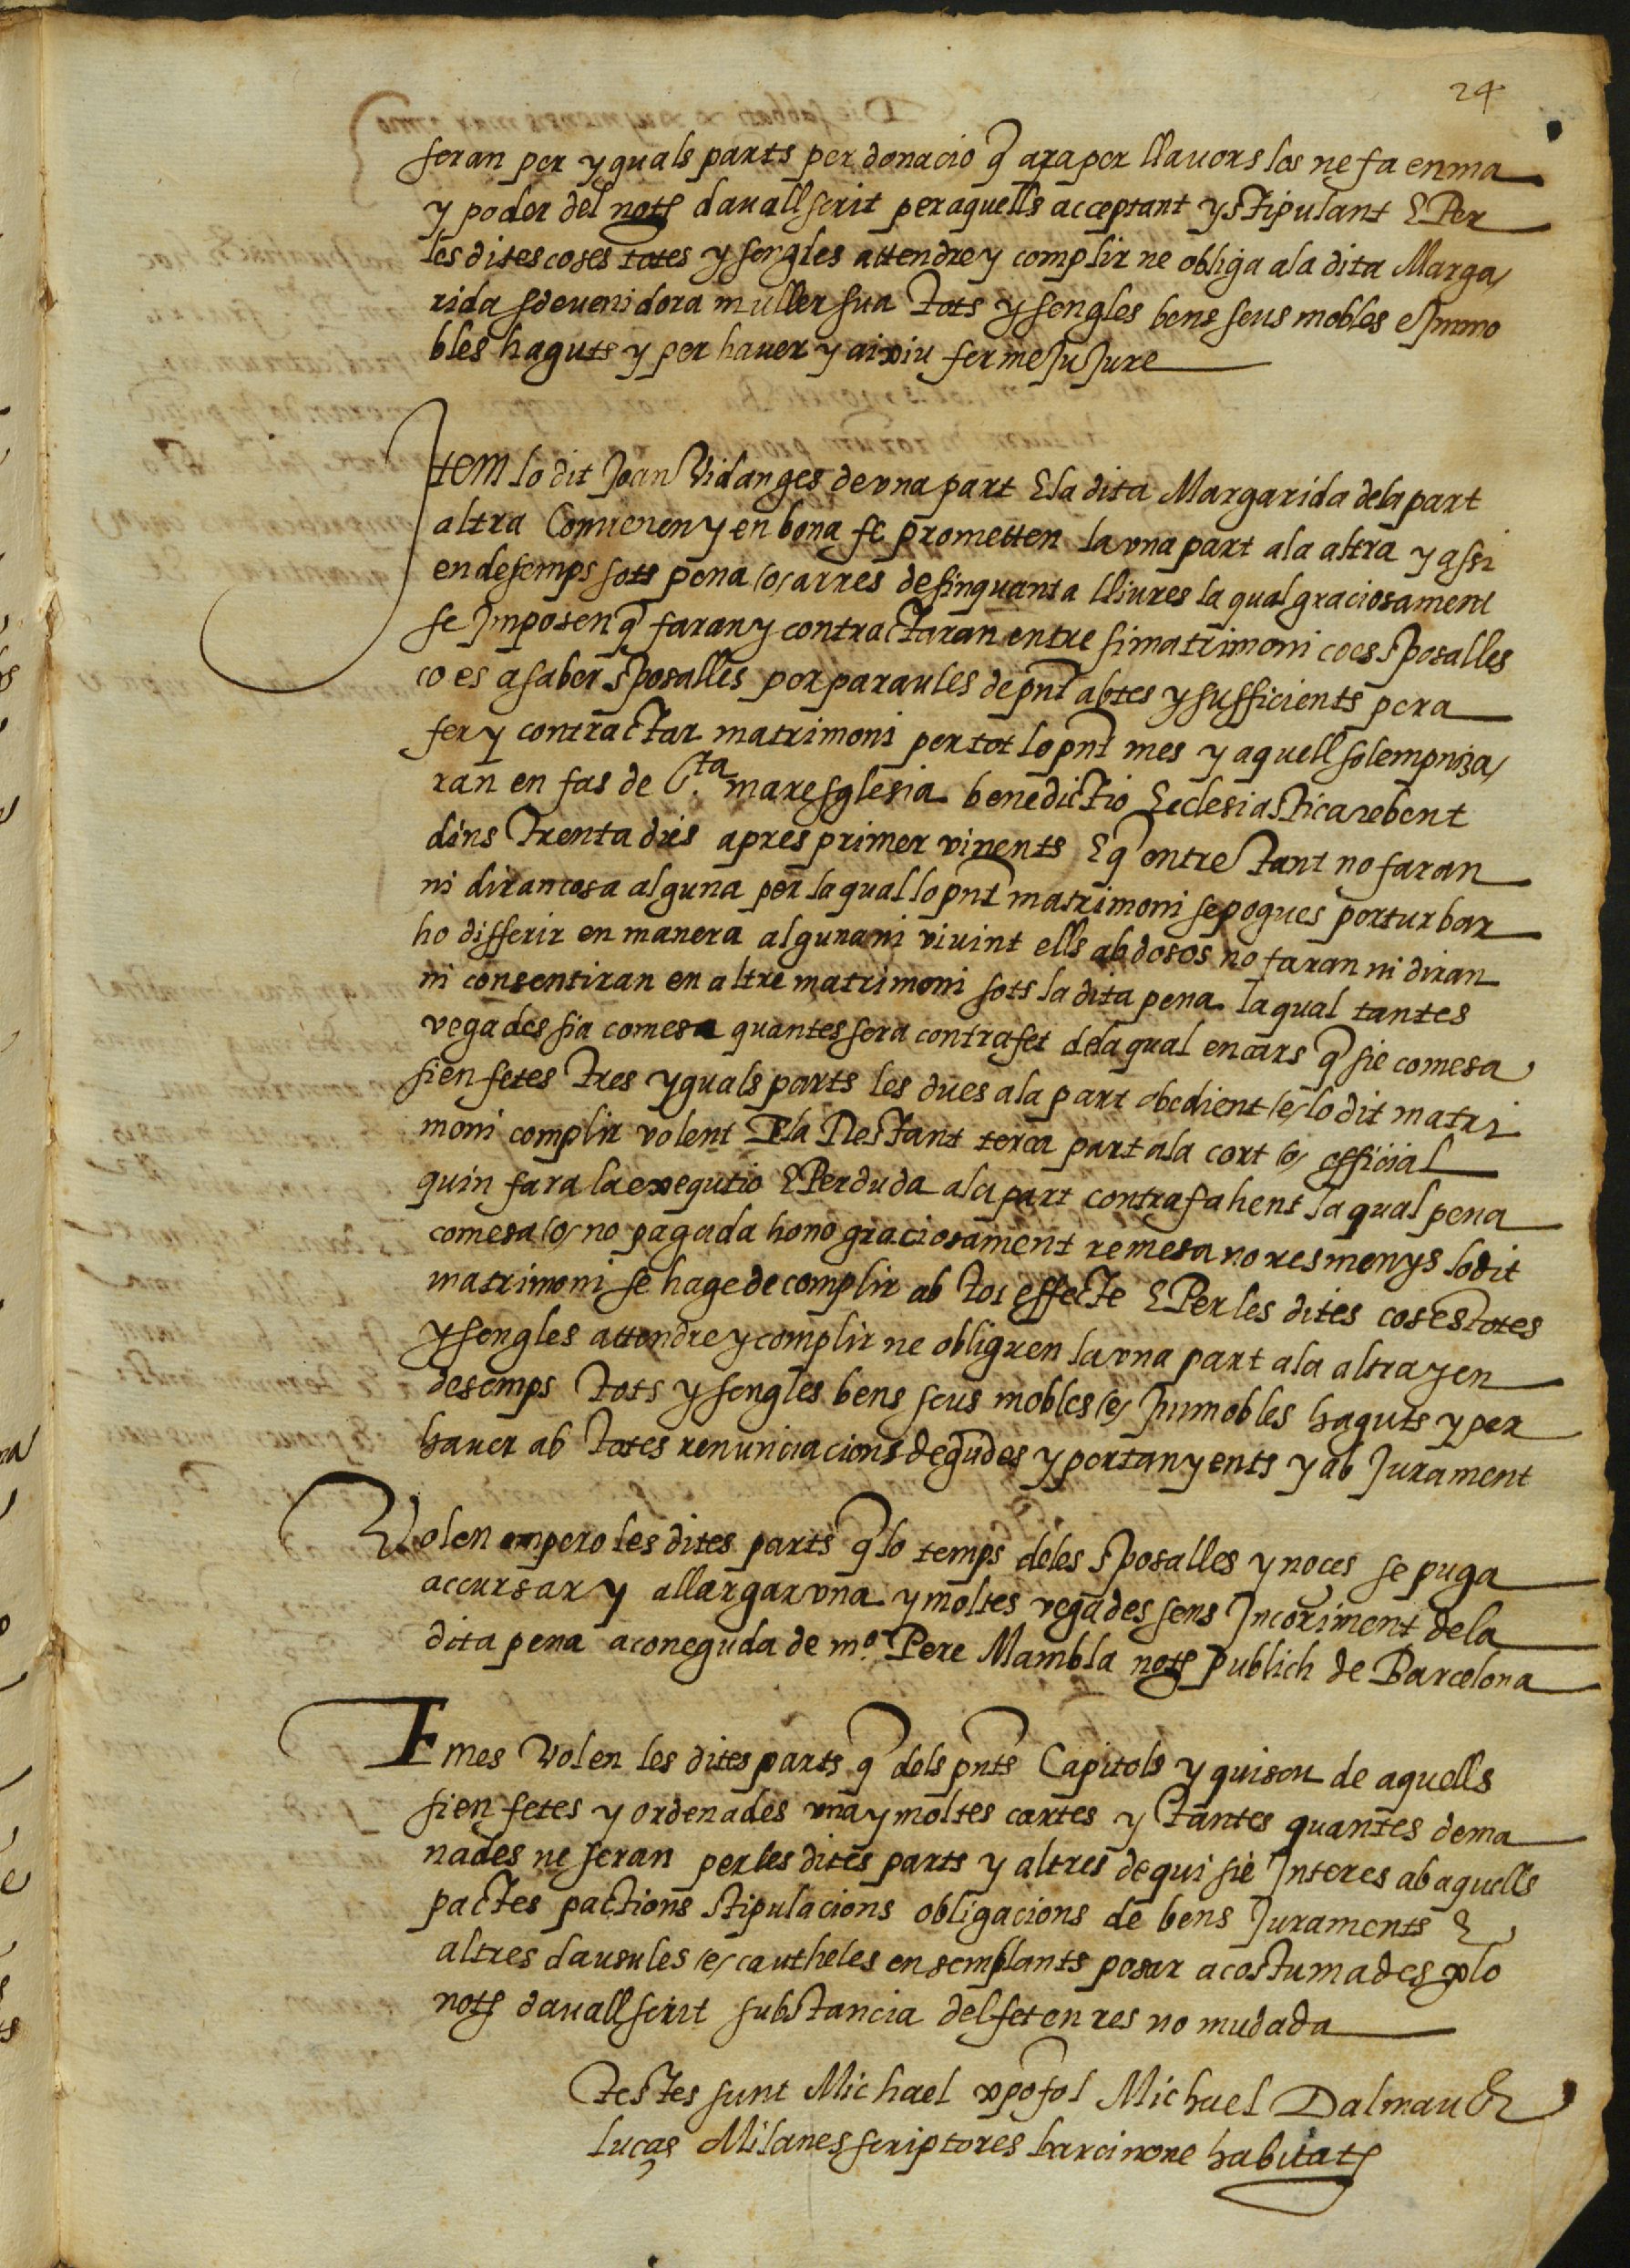 24
seran per yguals parts per donacio q̃ ara per llauors los ne fa en ma
y poder del notʒ dauall scrit per aquells acceptant y stipulant E Per
les dites coses totes y sengles attendre y complir ne obliga a la dita Marga/
rida sdeuenidora muller sua tots y sengles bens seus mobles e Immo
bles haguts y per hauer y aixiu ferme Ju Jure
Item lo dit Joan Vidanges de vna part E la dita Margarida de la part
altra Conuenen y en bona fe prometten la vna part a la altra y assi
en desemps sots pena /o/ arres de sinquanta lliures la qual graciosament
se Imposen q̃ faran y contractaran entre si matrimoni ço es sposalles
ço es a saber sposalles per paraules de pñt abtes y sufficients pera
fer y contractar matrimoni per tot lo pñt mes y aquell solempniza/
ran en fas de S.ta mare sglesia benedictio Ecclesiastica rebent
dins trenta dies apres primer vinents E q̃ entre tant no faran
ni diran cosa alguna per la qual lo pñt matrimoni se pogues perturbar
ho differir en manera alguna ni viuint ells abdosos no faran ni diran
ni consentiran en altre matrimoni sots la dita pena la qual tantes
vegades sia comesa quantes sera contrafet de la qual encars q̃ sie comesa
sien fetes tres yguals parts les dues a la part obedient /e/ lo dit matri
moni complir volent E la Restant terça part a la cort /o/ official
quin fara la exequtio E Perduda a la part contrafahent la qual pena
comesa /o/ no pagada ho no graciosament remesa no res menys lo dit
matrimoni se hage de complir ab tot effecte E Per les dites coses totes
y sengles attendre y complir ne obliguen la vna part a la altra y en
desemps tots y sengles bens seus mobles /e/ Immobles haguts y per
hauer ab totes renunciacions degudes y pertanyents y ab Jurament
Volen empero les dites parts q̃ lo temps de les sposalles y noces se puga
accursar y allargar vna y moltes vegades sens Incoriment de la
dita pena a coneguda de mº. Pere Mambla notʒ publich de Barcelona
E mes Volen les dites parts q̃ dels pñts Capitols y quiscu de aquells
sien fetes y ordenades vna y moltes cartes y tantes quantes dema
nades ne seran per les dites parts y altres de qui sie Interes ab aquells
pactes pactions stipulacions obligacions de bens Juraments E
altres clausules /e/ cautheles en semblants posar acostumades p̱ lo
notʒ dauall scrit substancia del fet en res no mudada
testes sunt Michael xp̃ofol Michael Dalmau &
lucas Milanes scriptores barcinone habitatʒ